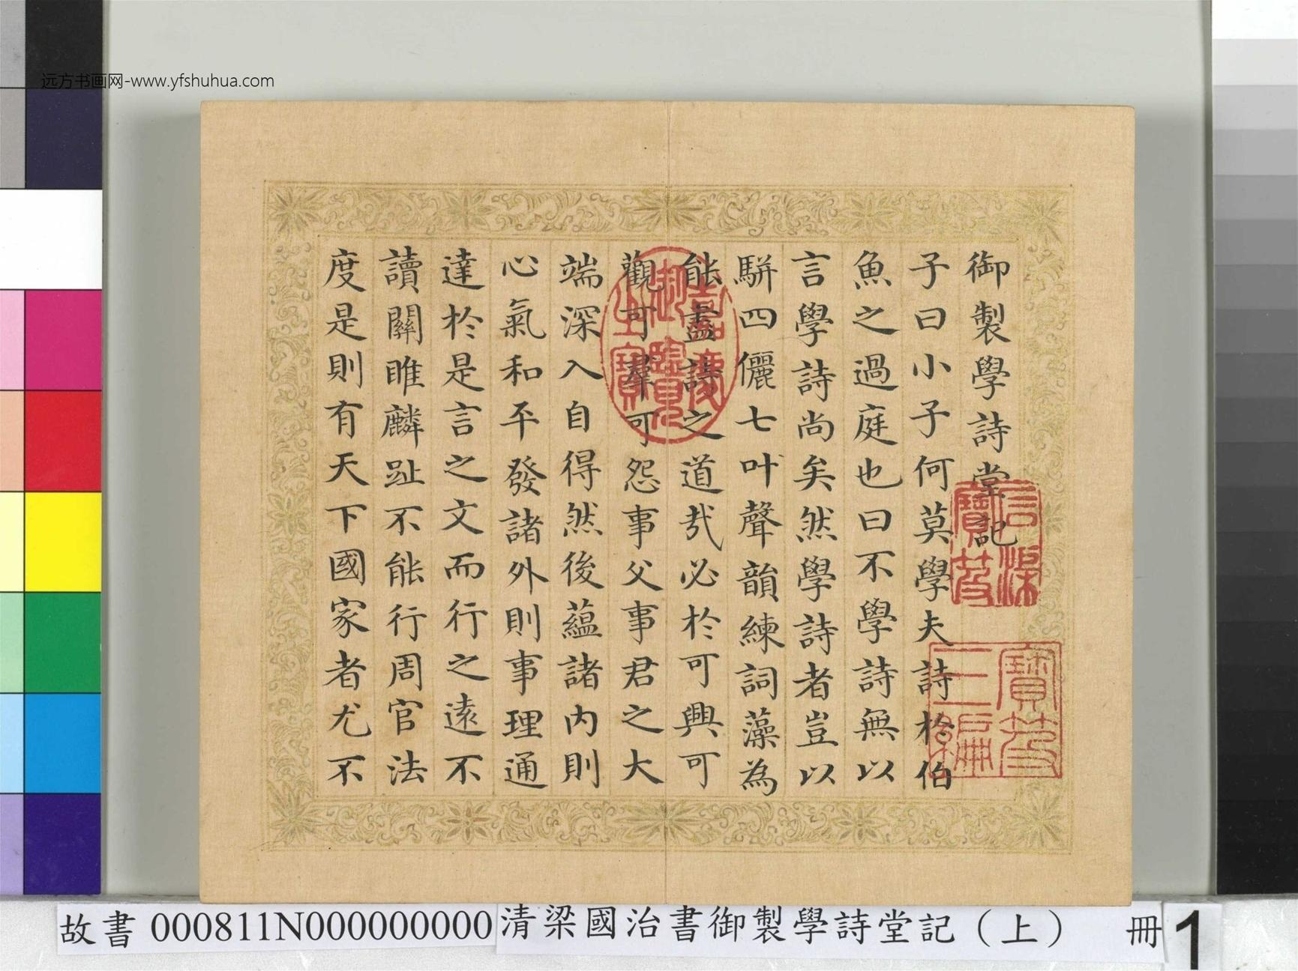 远方书画网-www.yfshuhua.com
御製學詩堂記
子曰小子何莫學夫詩於伯
魚之過庭也曰不學詩無以
言學詩尚矣然學詩者豈以
駢四儷七叶聲韻練詞藻為
能盡詩之道哉必於可興可
觀可羣可怨事父事君之大
端深入自得然後蘊諸內則
心氣和平發諸外則事理通
達於是言之文而行之遠不
讀關雎麟趾不能行周官法
度是則有天下國家者尤不
嘉慶御覽之寶
石渠寶笈
寶笈三編
故書 000811N000000000 清梁國治書御製學詩堂記（上） 冊 1